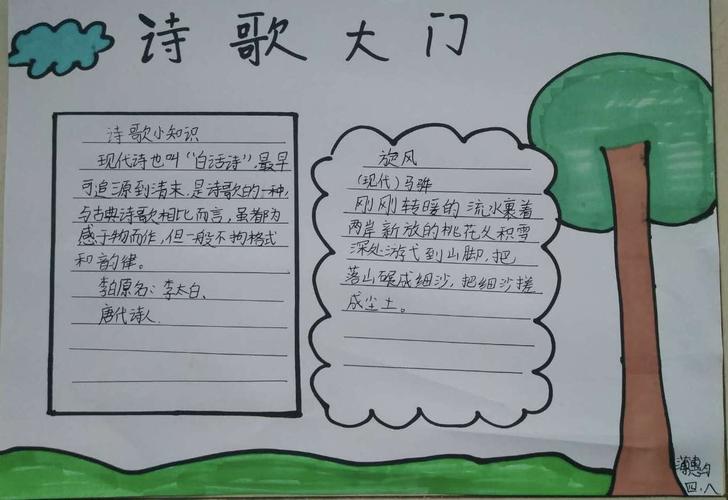 诗歌大门
诗歌小知识
现代诗也叫“白话诗”,最早
可追源到清末,是诗歌的一种,
与古典诗歌相比而言,虽都为
感于物而作,但一般不拘格式
和韵律。
李白原名:李太白、
唐代诗人.
旋风
(现代)马骅
刚刚转暖的流水裹着
两岸新放的桃花从积雪
深处游弋到山脚,把
落山碾成细沙,把细沙搓
成尘土。
蒲惠夕
四.八